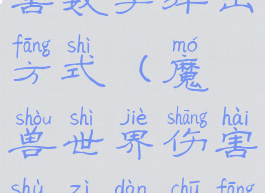 害数字弹出
fāng shì mó
方式（魔
shòu shì jiè shāng hài
兽世界伤害
shù zì dàn chū fāng